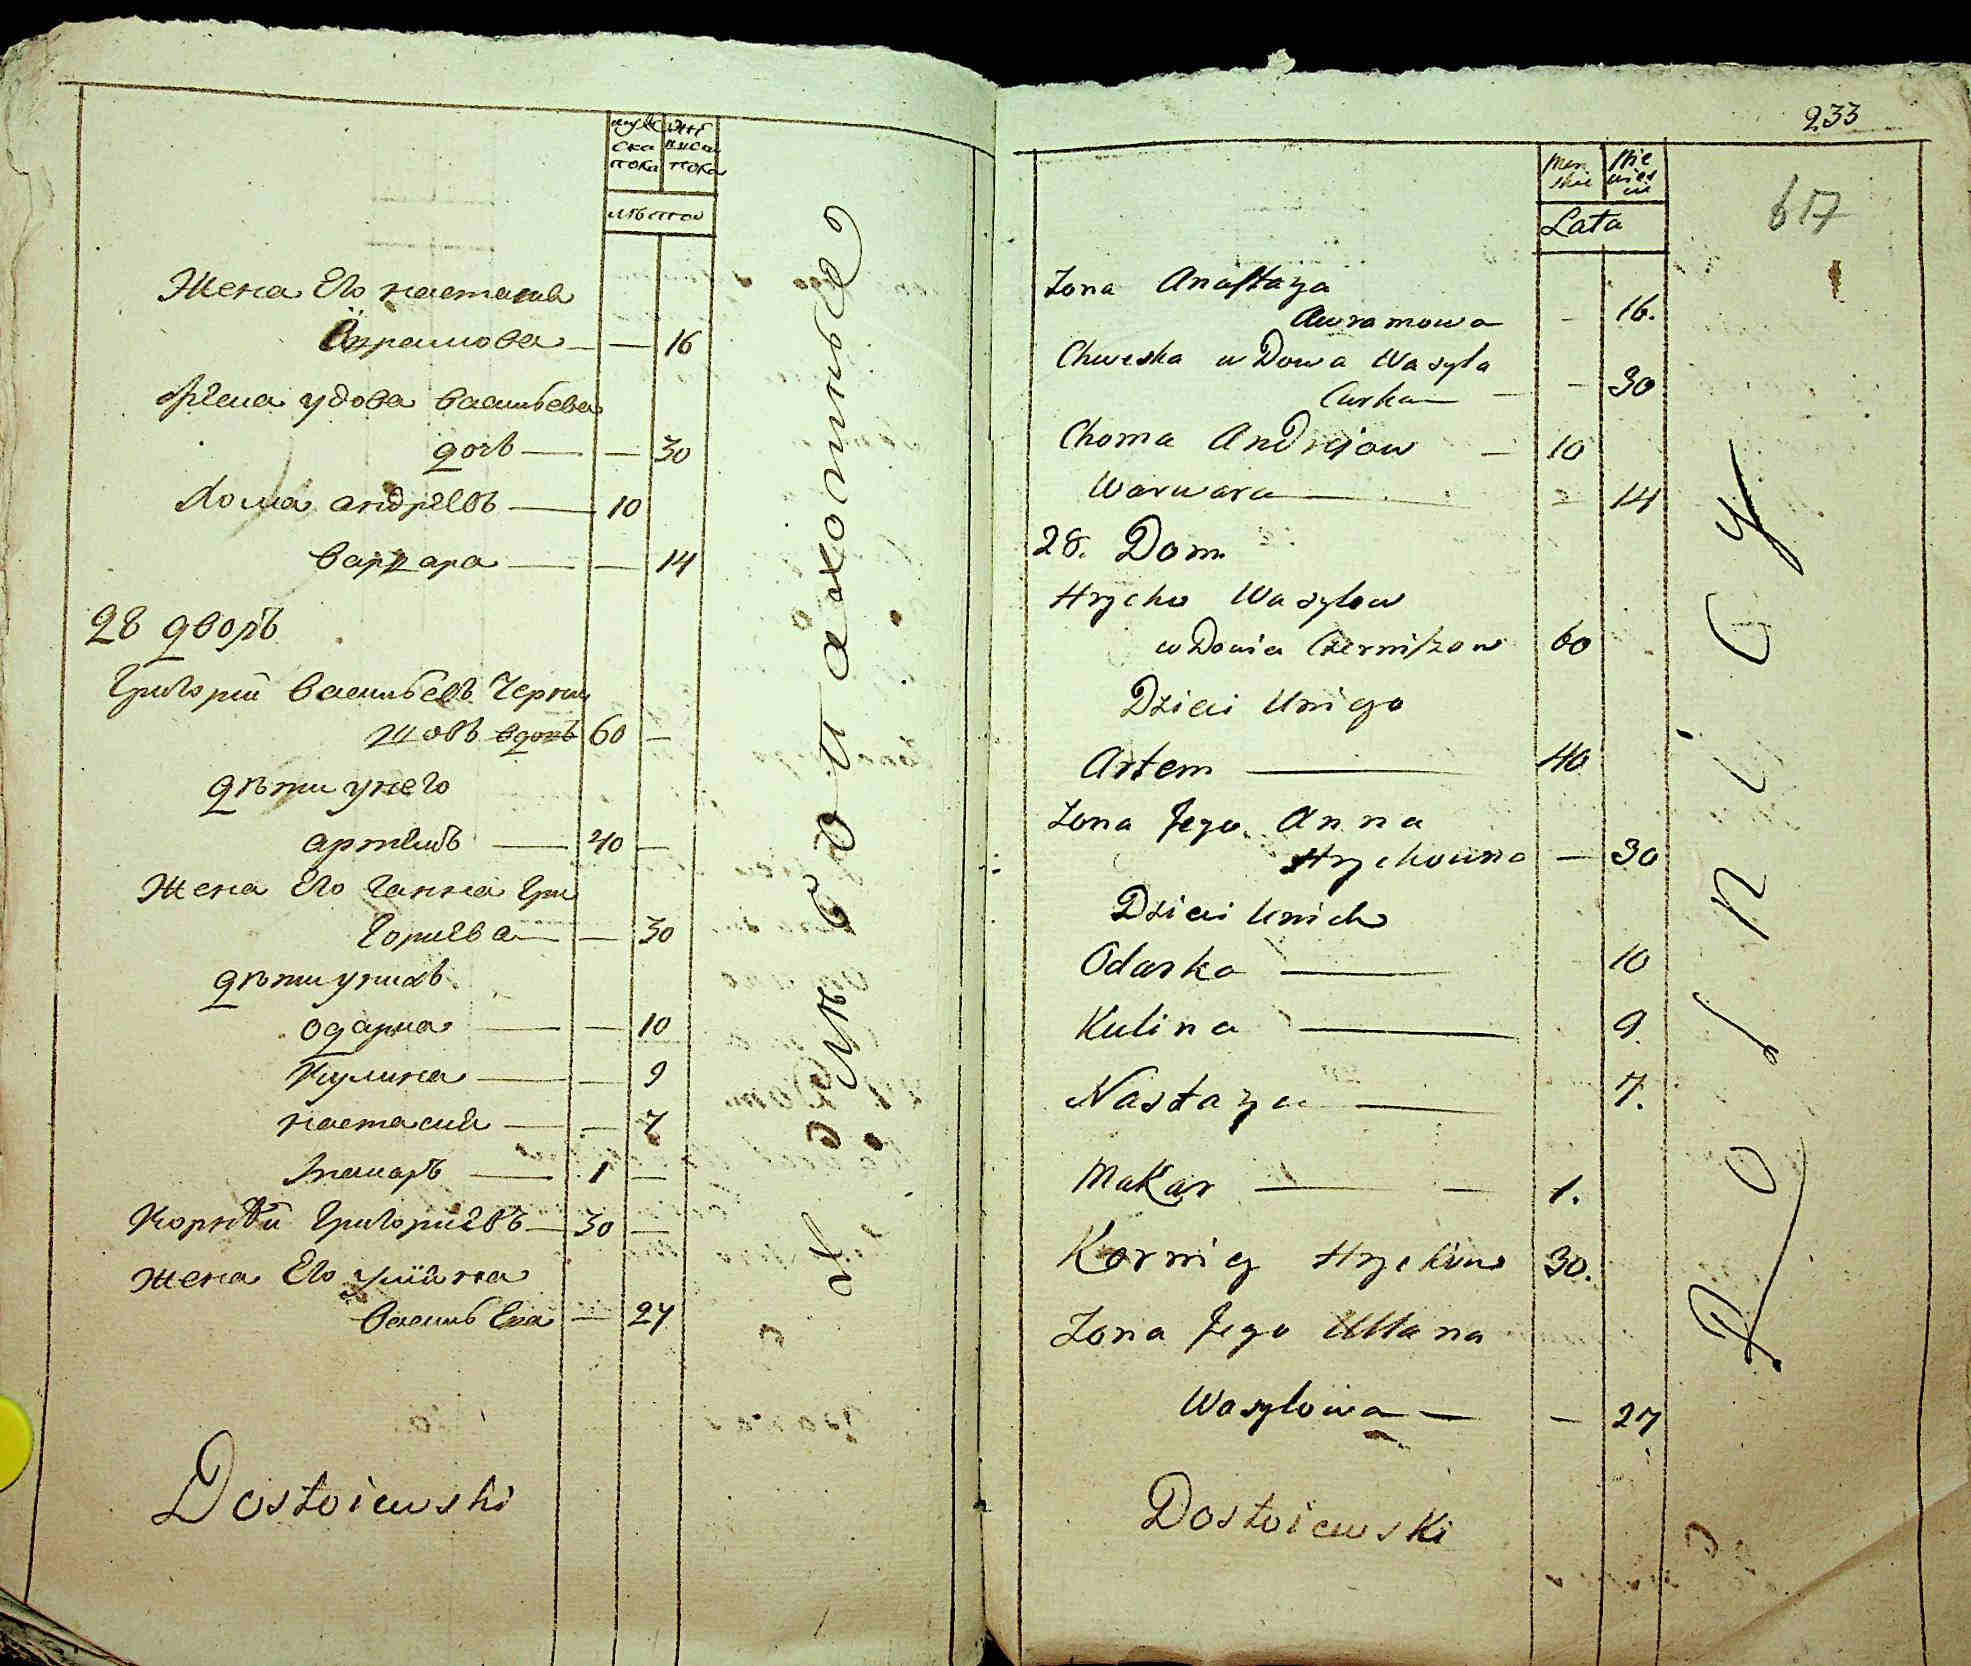 муже
ска
пола
жен
ска
пола
лѣтов
Жена Его настасия
Аврамова — — 16
вдова васильева
дочь — — 30
Хома андреевъ — 10
варвара — — 14
28 дворъ
Григорий васильевъ Черни
шовъ вдовъ 60 —
дѣти унего
артемъ — 40 —
Жена Его ганна Гри
горьева — — 30
дѣти унихъ
одарка — — 10
кулина — — 9
настасия — — 7
макаръ — 1 —
Корнѣй григориевъ — 30 —
жена Его улияна
василь Ева — 27
Dostoiewski
Мѣ
233
617
Men
skie
Nie
wies
cie
Lata
Żona Anastazya
Awramowa - 16.
Chweska wDowa Wasyla
Curka — - 30
Choma Andrejow - 10
Warwara — - 14
28. Dom
Hrycko Wasylow
wDowiec Czerniszow 60
Dzieci Uniego
Artem — 40
Żona Jego Anna
Hryckowna — 30
Dzieci Unich
Odarka — 10
Kulina — 9.
Nastazya — 7.
Makar — 1.
Korniey Hryckow 30.
Żona Jego Ullana
Wasylowa — - 27
Dostoiewski
Rolnicy